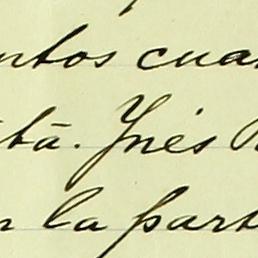 ntos cua
tá. Ynés
n la part